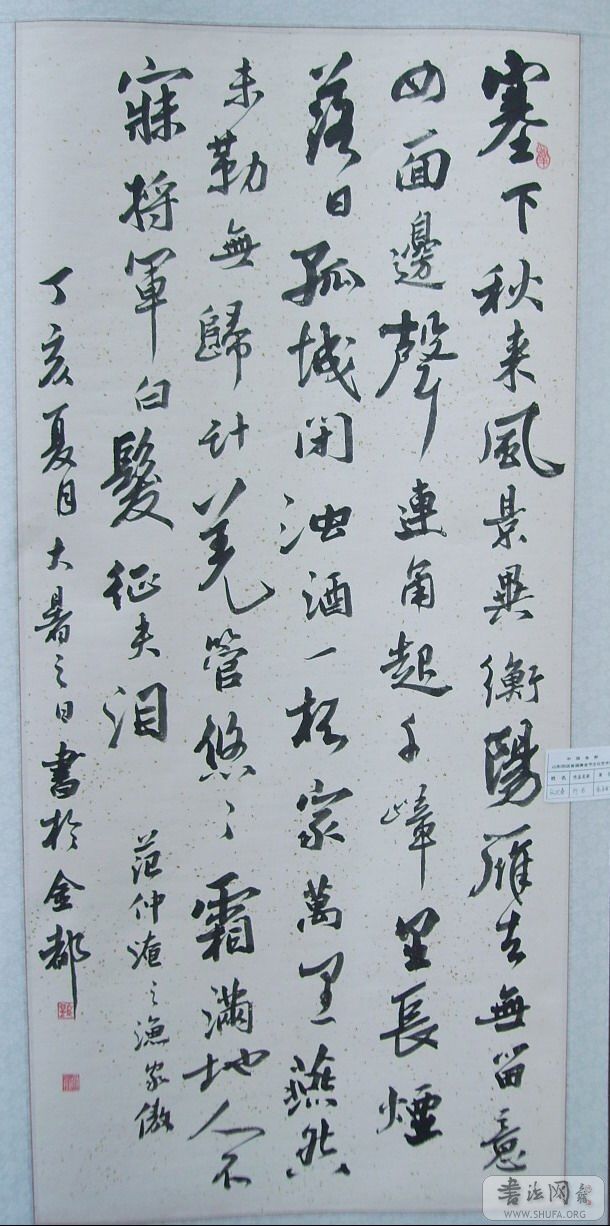 塞下秋来風景異衡陽雁去無留意
四面邊聲連角起千嶂里長煙
落日孤城閉浊酒一杯家萬里燕然
未勒無歸計羌管悠々霜滿地人不
寐將軍白髮征夫泪
范仲淹之漁家傲
丁亥夏月大暑之日書於金都
姓名
书法网
WWW.SHUFA.ORG